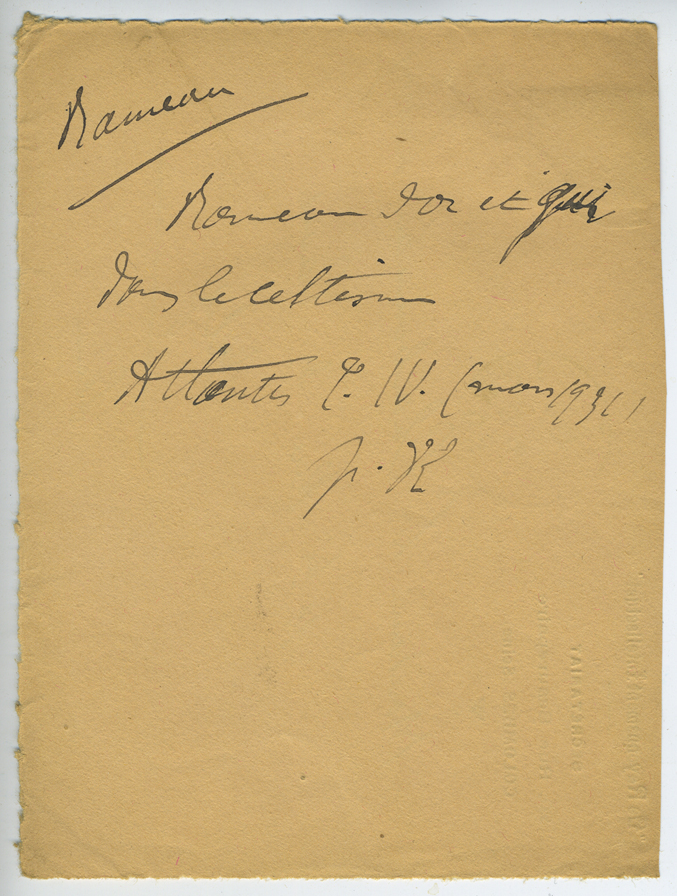 Rameau
Rameau d'or et gui
dans le celtisme
Atlantis T. IV. (mars 1931)
p.